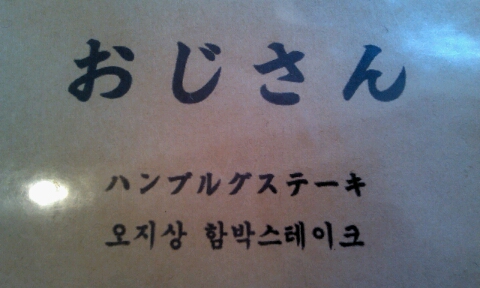 おじさん
ハンブルグステーキ
오지상 함박스테이크